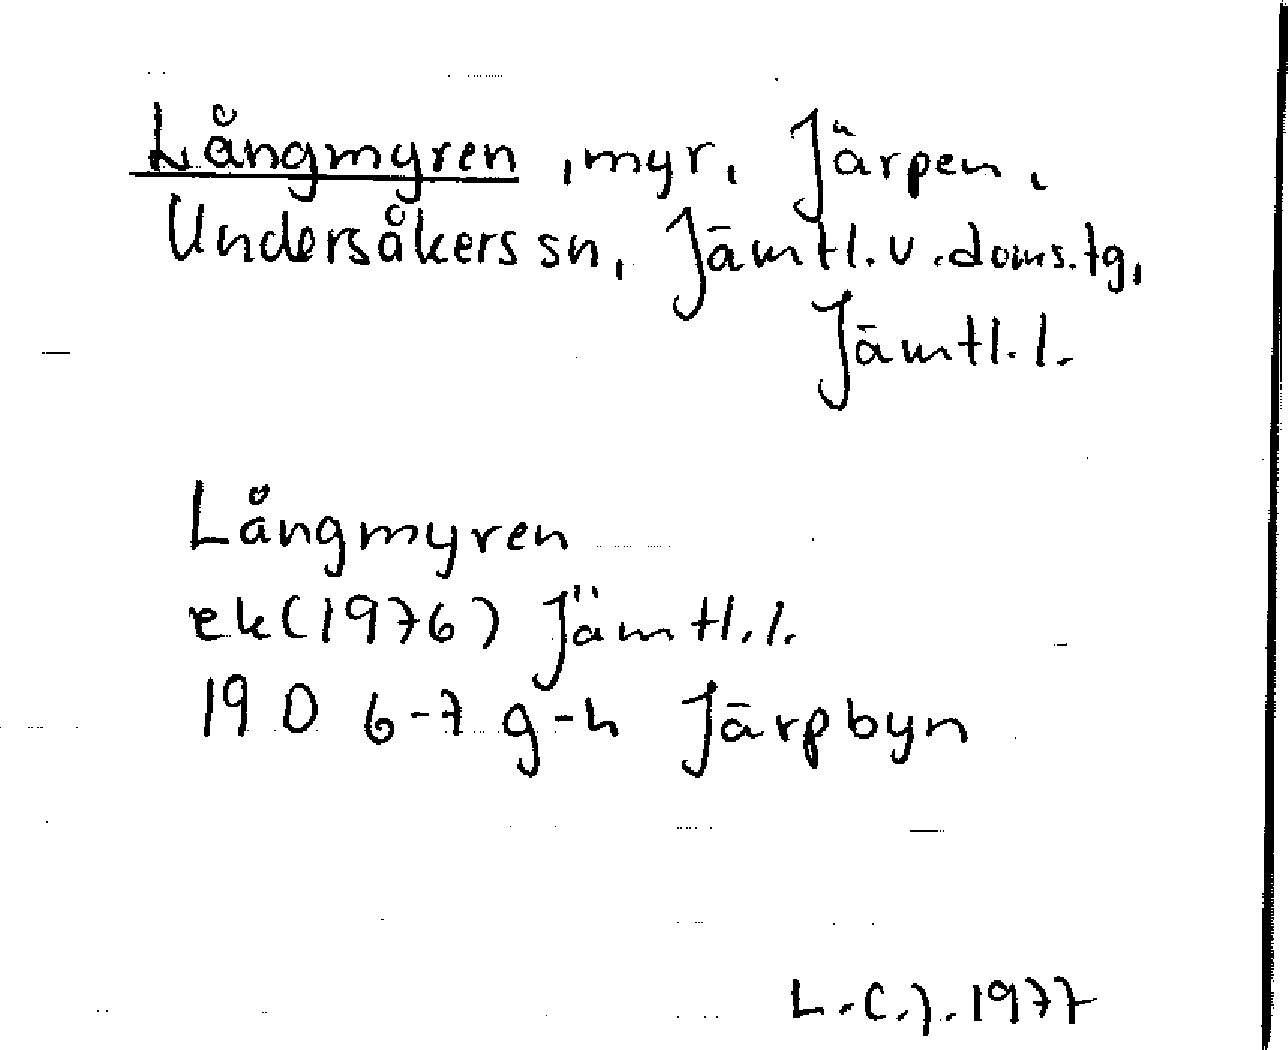 Långmyren, myr, Järpen,
Undersåkers sn, Jämtl. v. doms. tg,
Jämtl. l.
Långmyren
ek (1976) Jämtl. l.
19 D 6-7 g-h Järpbyn
L.C.J. 1977